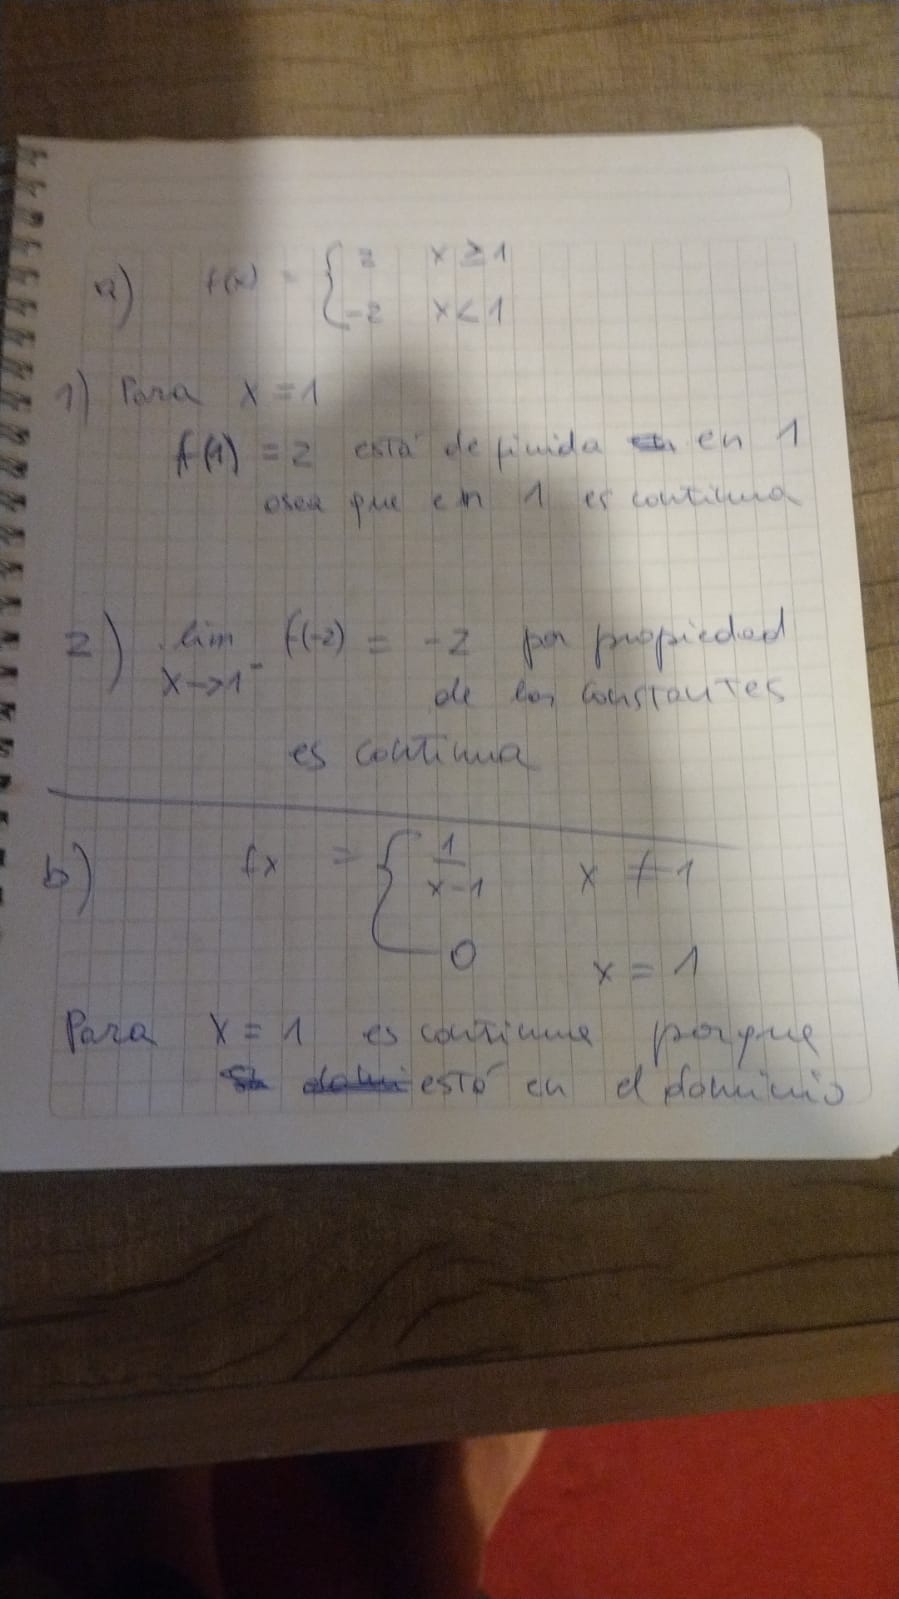 a) f(x) = { 2 x ≥ 1
-2 x < 1
1) Para x = 1
f(1) = 2 está definida en 1
osea que en 1 es continua
2) lim f(-2) = -2 por propiedad
x→1⁻ de las constantes
es continua
b) fx = { 1/(x-1) x ≠ 1
0 x = 1
Para x = 1 es continua porque
está en el dominio